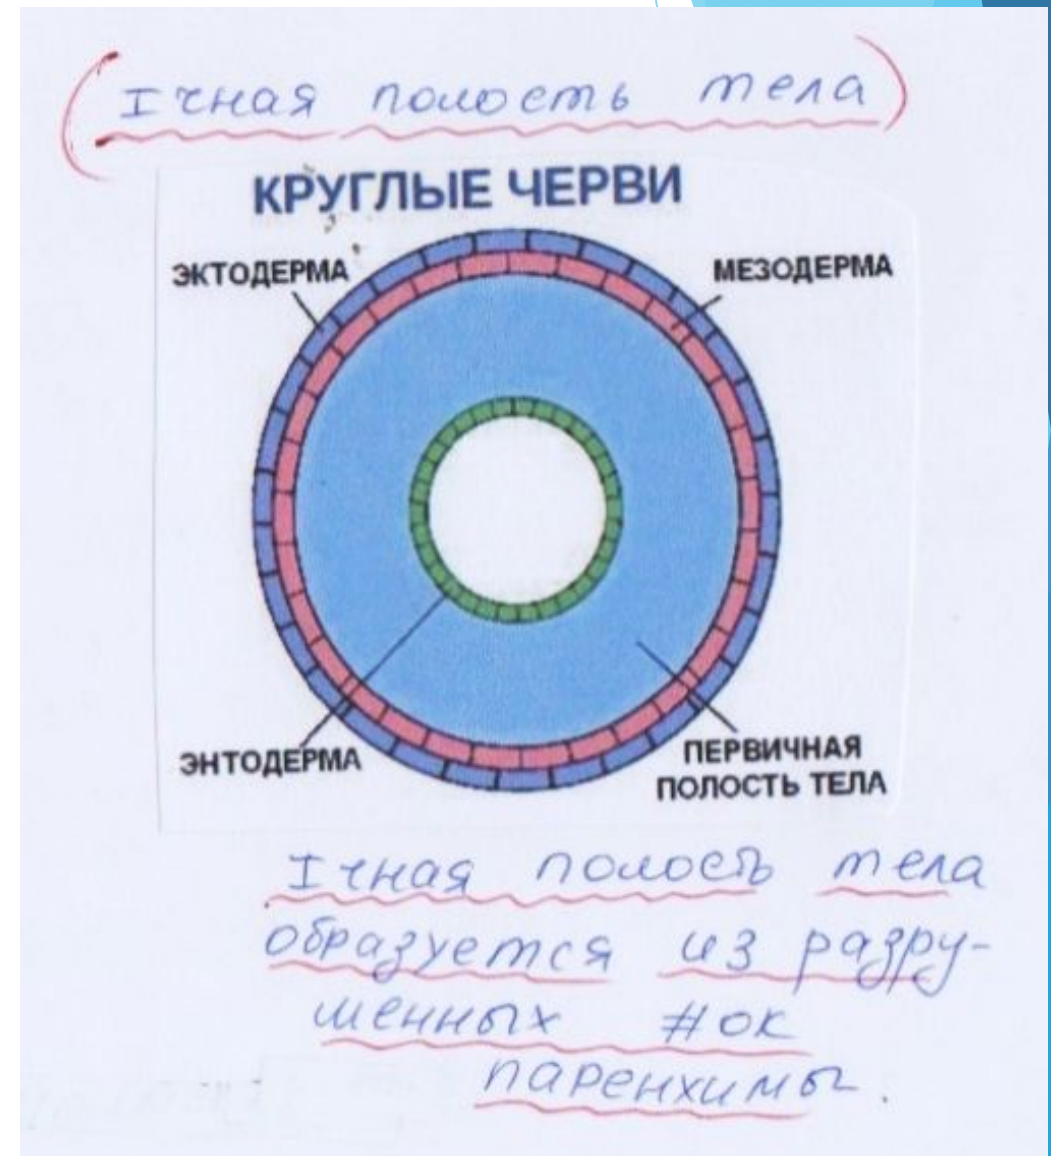 (Iчная полость тела)
КРУГЛЫЕ ЧЕРВИ
ЭКТОДЕРМА
МЕЗОДЕРМА
ЭНТОДЕРМА
ПЕРВИЧНАЯ
ПОЛОСТЬ ТЕЛА
Iчная полость тела
образуется из разру-
шенных #ок
паренхимы.